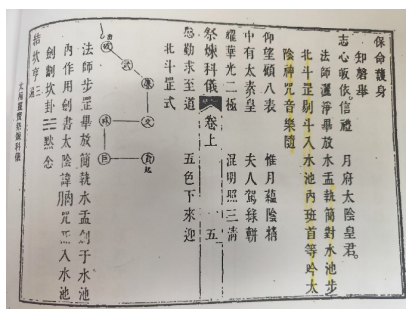 保命護身
知磬舉
志心皈依信禮　月府太陰皇君。
法師灑淨畢放水盂執簡對水池步
北斗罡剔斗入水池內班首等吟太
陰神咒音樂隨
仰望顧八表　惟月蘊陰精
中有太素皇　夫人駕綠軿
耀華光二極　混明照三清
祭煉科儀　卷上　五
懇勤求至道　五色下來迎
北斗罡式
武
廉
文
祿
巨
貪
起
法師步罡畢放簡執水盂劍于水池
內作用劍書太陰諱咒入水池
劍劃坎卦☵默念
三